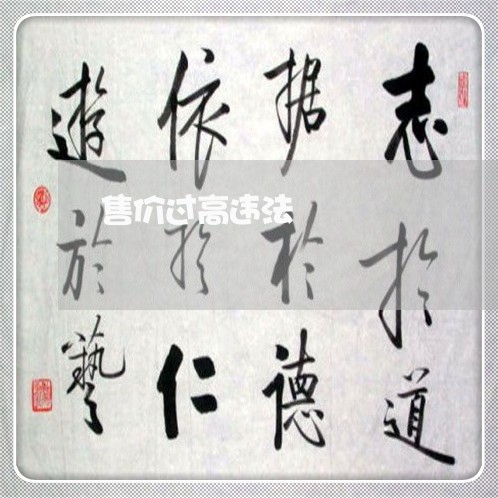 志於道
据於德
依於仁
遊於藝
售价过高违法